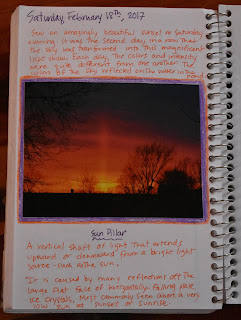 Saturday, February 18th, 2017
Saw an amazingly beautiful sunset on Saturday
evening. It was the second day in a row that
the sky was transformed into this magnificent
light show. Each day, the colors and intensity
were quite different from one another. The
colors of the sky reflected on the water in the
pond
Sun Pillar
A vertical shaft of light that extends
upward or downward from a bright light
source - such as the sun.
It is caused by many reflections off the
large flat face of horizontally falling plate
ice crystals. Most commonly seen about a very
low sun at sunset or sunrise.